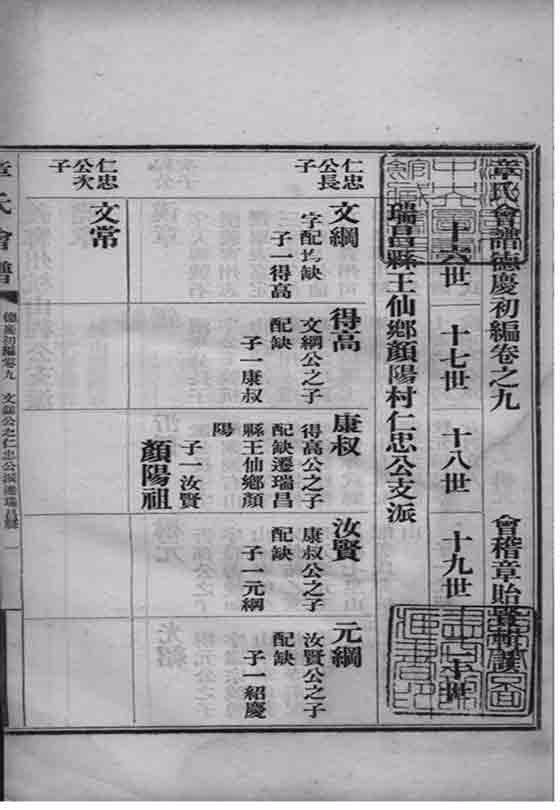 章氏會譜德慶初編卷之九
會稽章貽賢輯
十六世
十七世
十八世
十九世
瑞昌縣王仙鄉顏陽村仁忠公支派
仁忠
公長
子
文綱
字配均缺
子一得高
得高
文綱公之子
配缺
子一康叔
康叔
得高公之子
配缺遷瑞昌
縣王仙鄉顏
陽
子一汝賢
顏陽祖
汝賢
康叔公之子
配缺
子一元綱
元綱
汝賢公之子
配缺
子一紹慶
仁忠
公次
子
文常
章氏會譜
德慶初編卷九
一